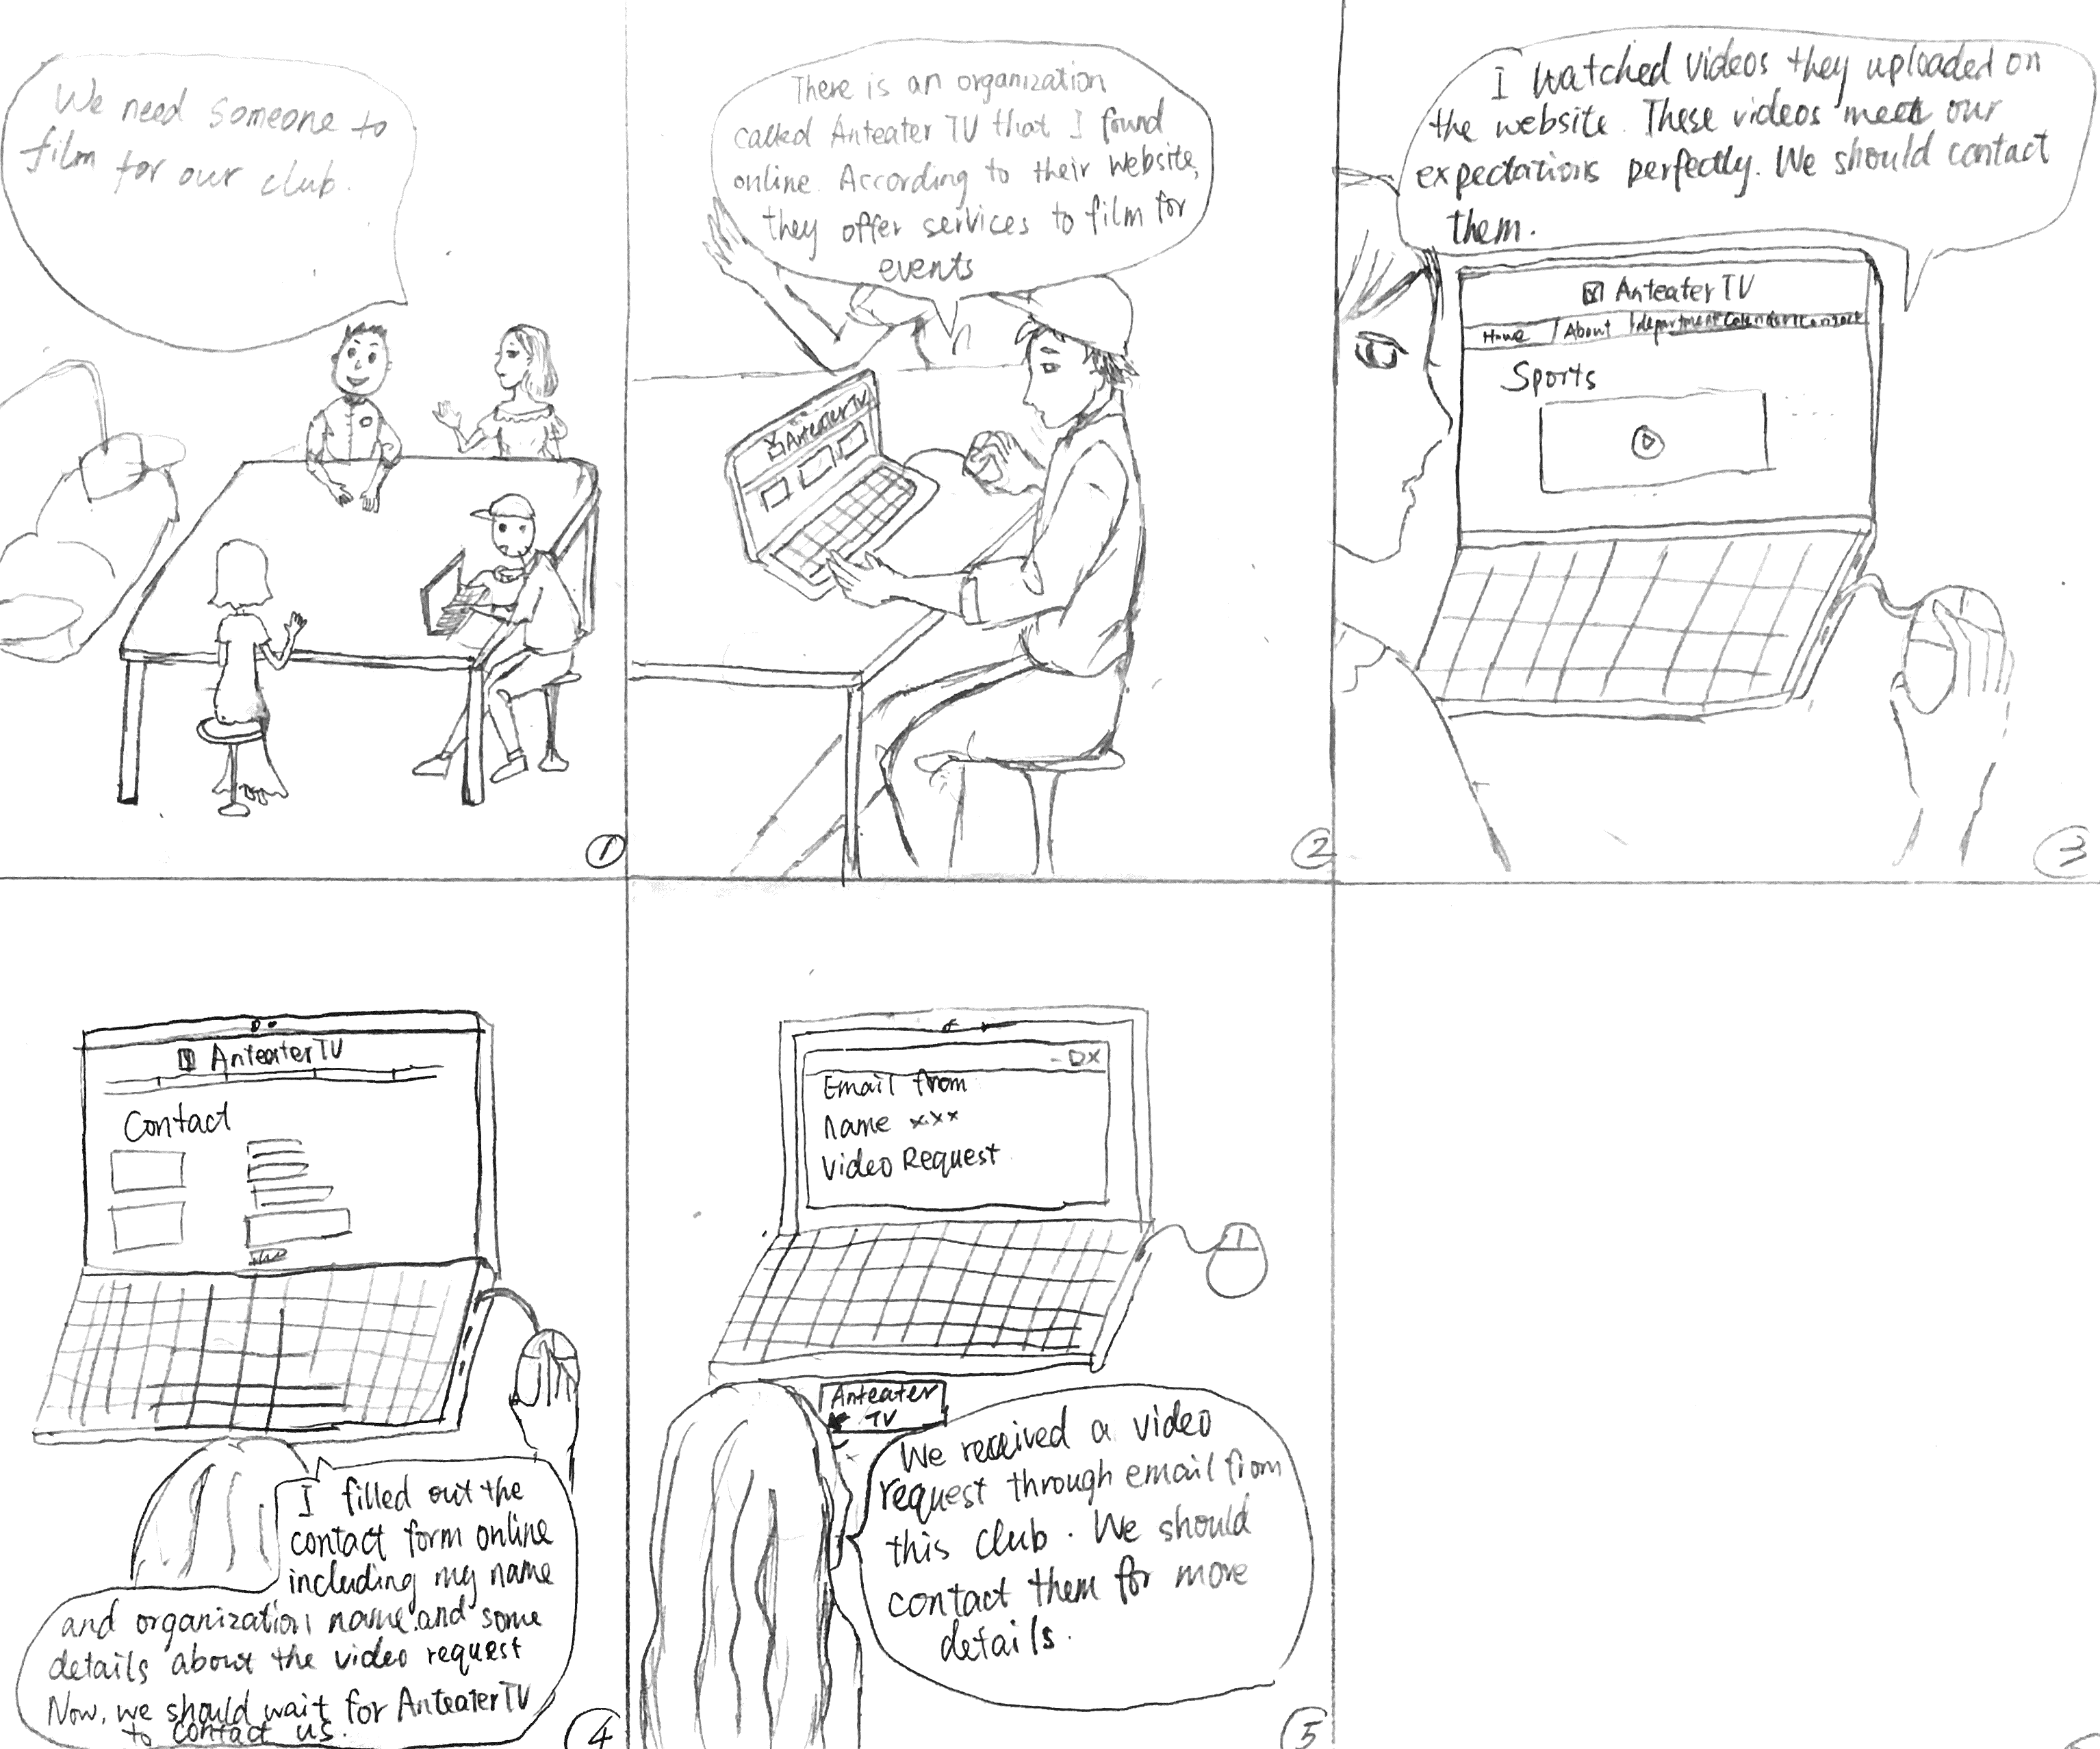 We need someone to
film for our club.
1
There is an organization
called Anteater TV that I found
online. According to their website,
they offer services to film for
events
Anteater TV
2
I watched videos they uploaded on
the website. These videos meet our
expectations perfectly. We should contact
them.
Anteater TV
Home / About / department Calendar Contact
Sports
3
Anteater TV
Contact
I filled out the
contact form online
including my name
and organization name and some
details about the video request
Now, we should wait for Anteater TV
to contact us.
4
Email from
Name xxx
Video Request
Anteater
TV
We received a video
request through email from
this club. We should
contact them for more
details.
5